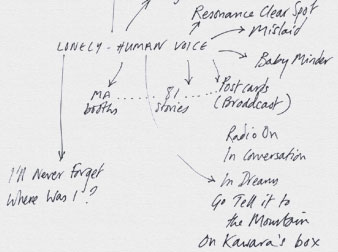 Resonance Clear Spot
Mislaid
LONELY - HUMAN VOICE
Baby Minder
MA booths
81 stories
Postcards
(Broadcast)
Radio On
In Conversation
I'll Never Forget
Where Was I?
In Dreams
Go Tell it to
the Mountain
On Kawara's box